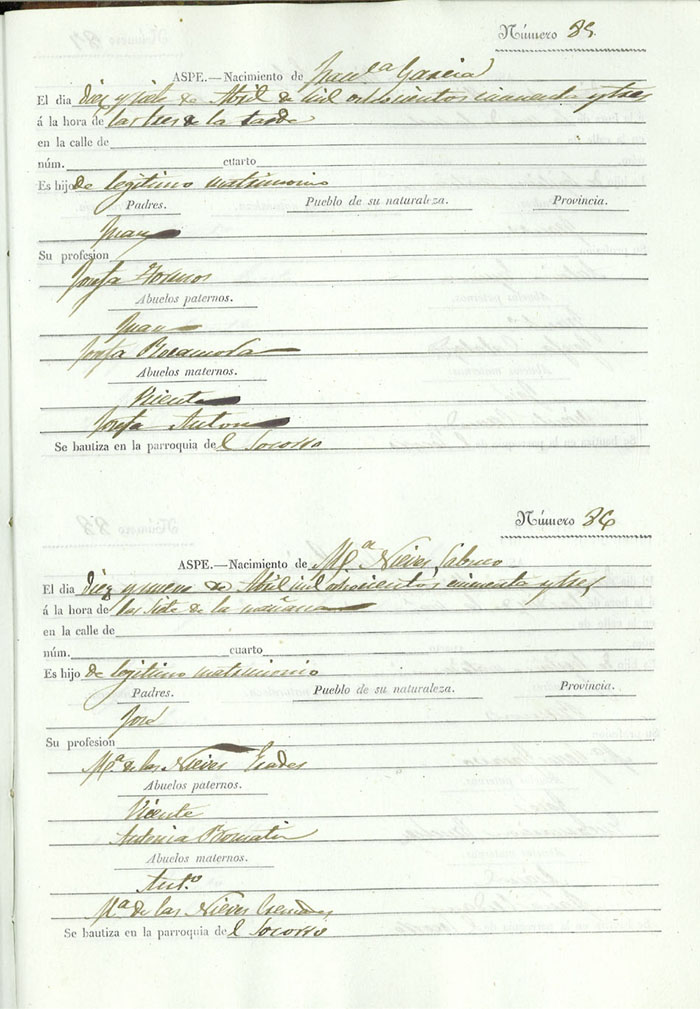 Número 85
ASPE.—Nacimiento de García
El dia diez y siete de Abril de mil ochocientos cincuenta y tres
á la hora de las tres de la tarde
en la calle de
núm. cuarto
Es hijo de legitimo matrimonio
Padres. Pueblo de su naturaleza. Provincia.
Juan
Su profesion
Josefa
Abuelos paternos.
Juan
Josefa
Abuelos maternos.
Vicente
Josefa Anton
Se bautiza en la parroquia del Socorro
Número 86
ASPE.—Nacimiento de Mª Nieves
El dia diez y nueve de Abril mil ochocientos cincuenta y tres
á la hora de las siete de la mañana
en la calle de
núm. cuarto
Es hijo de legitimo matrimonio
Padres. Pueblo de su naturaleza. Provincia.
José
Su profesion
Mª de las Nieves
Abuelos paternos.
Vicente
Antonia
Abuelos maternos.
Antº
Mª de las Nieves Cremades
Se bautiza en la parroquia del Socorro